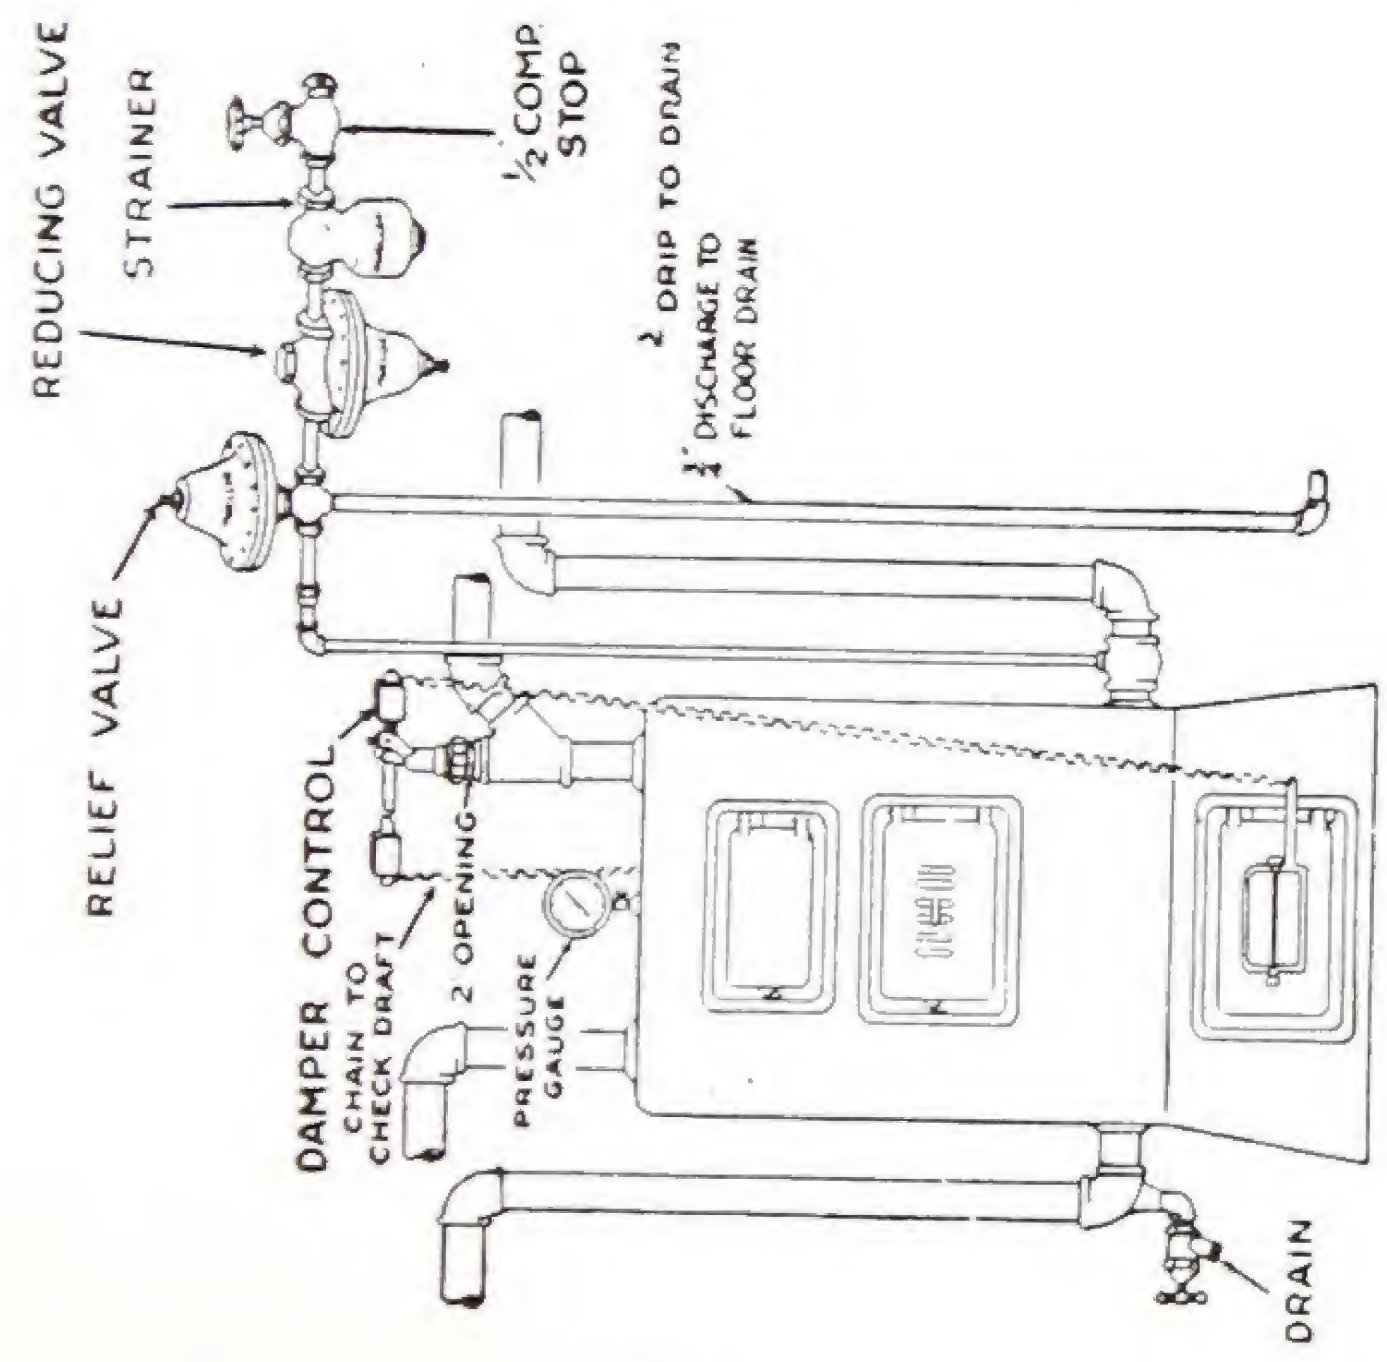 REDUCING VALVE
STRAINER
1/2 COMP.
STOP
RELIEF VALVE
DRIP TO DRAIN
3/4" DISCHARGE TO
FLOOR DRAIN
DAMPER CONTROL
CHAIN TO
CHECK DRAFT
2 OPENING
PRESSURE
GAUGE
DRAIN